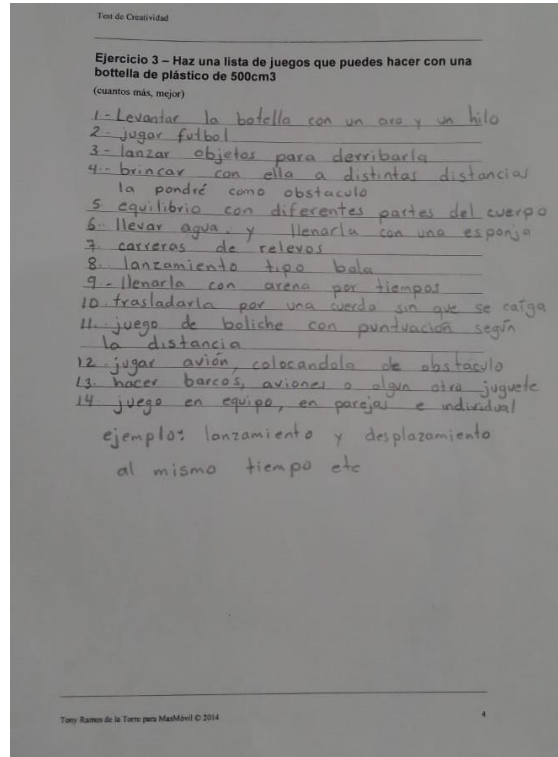 Test de Creatividad
Ejercicio 3 – Haz una lista de juegos que puedes hacer con una
bottella de plástico de 500cm3
(cuantos más, mejor)
1 - Levantar la botella con un aro y un hilo
2 - jugar futbol
3 - lanzar objetos para derribarla
4 - brincar con ella a distintas distancias
la pondré como obstaculo
5 equilibrio con diferentes partes del cuerpo
6. llevar agua y llenarla con una esponja
7. carreras de relevos
8. lanzamiento tipo bala
9 - llenarla con arena por tiempos
10. trasladarla por una cuerda sin que se caíga
11. juego de boliche con puntuación según
la distancia
12. jugar avión, colocandola de obstáculo
13. hacer barcos, aviones o algun otro juguete
14 juego en equipo, en parejas e individual
ejemplo: lanzamiento y desplazamiento
al mismo tiempo etc
Tony Ramos de la Torre para MasMóvil © 2014
4